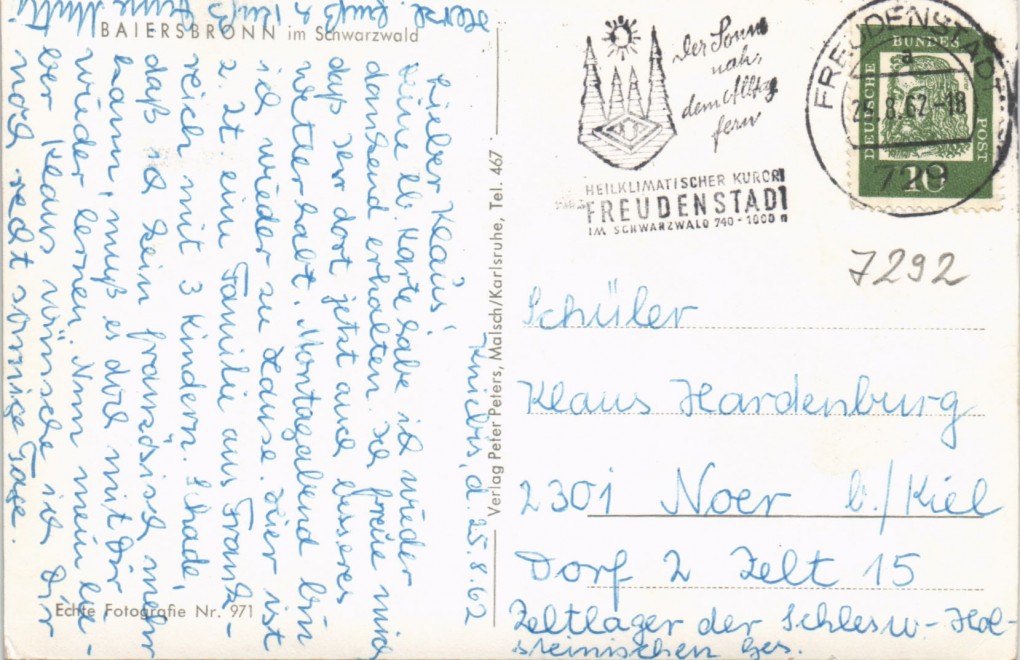 BAIERSBRONN im Schwarzwald
Kniebis, d. 25.8.62
Lieber Klaus!
Deine lb. Karte habe ich wieder
dankend erhalten. Ich freue mich
daß Ihr dort jetzt auch besseres
Wetter habt. Montagabend bin
ich wieder zu Hause. Hier ist
z. Zt eine Familie aus Frank-
reich mit 3 Kindern. Schade,
daß ich kein französisch mehr
kann, muß es doch mit Dir
wieder lernen. Nun mein lie-
ber Klaus wünsche ich Dir
noch recht sonnige Tage.
Herzl. Gruß & Kuß Deine Mutti
Echte Fotografie Nr. 971
Verlag Peter Peters, Malsch/Karlsruhe, Tel. 467
Der Sonne
nah,
dem Alltag
fern
HEILKLIMATISCHER KURORT
FREUDENSTADT
IM SCHWARZWALD 740 - 1000 m
FREUDENSTADT
a
25.8.62-18
729
DEUTSCHE
BUNDES
POST
10
7292
Schüler
Klaus Hardenburg
2301 Noer b./Kiel
Dorf 2 Zelt 15
Zeltlager der Schlesw-Hol-
steinischen Ges.